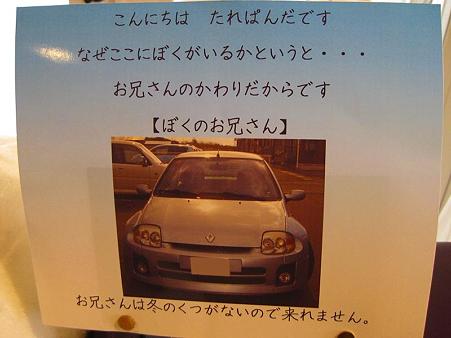 こんにちは　たれぱんだです
なぜここにぼくがいるかというと・・・
お兄さんのかわりだからです
【ぼくのお兄さん】
お兄さんは冬のくつがないので来れません。